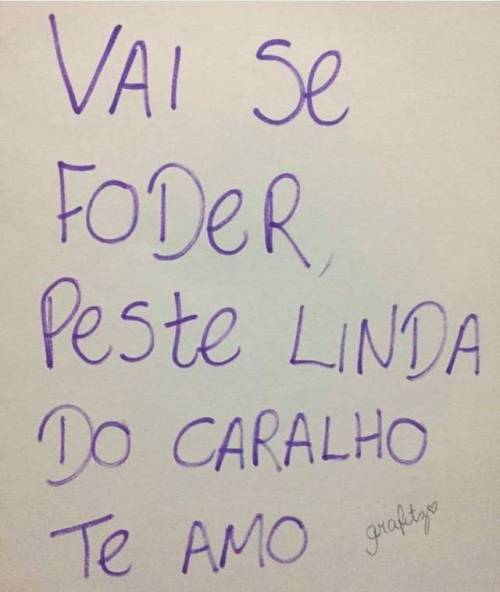 VAI Se
FODeR,
Peste LINDA
DO CARALHO
Te AMO
grafitz♡